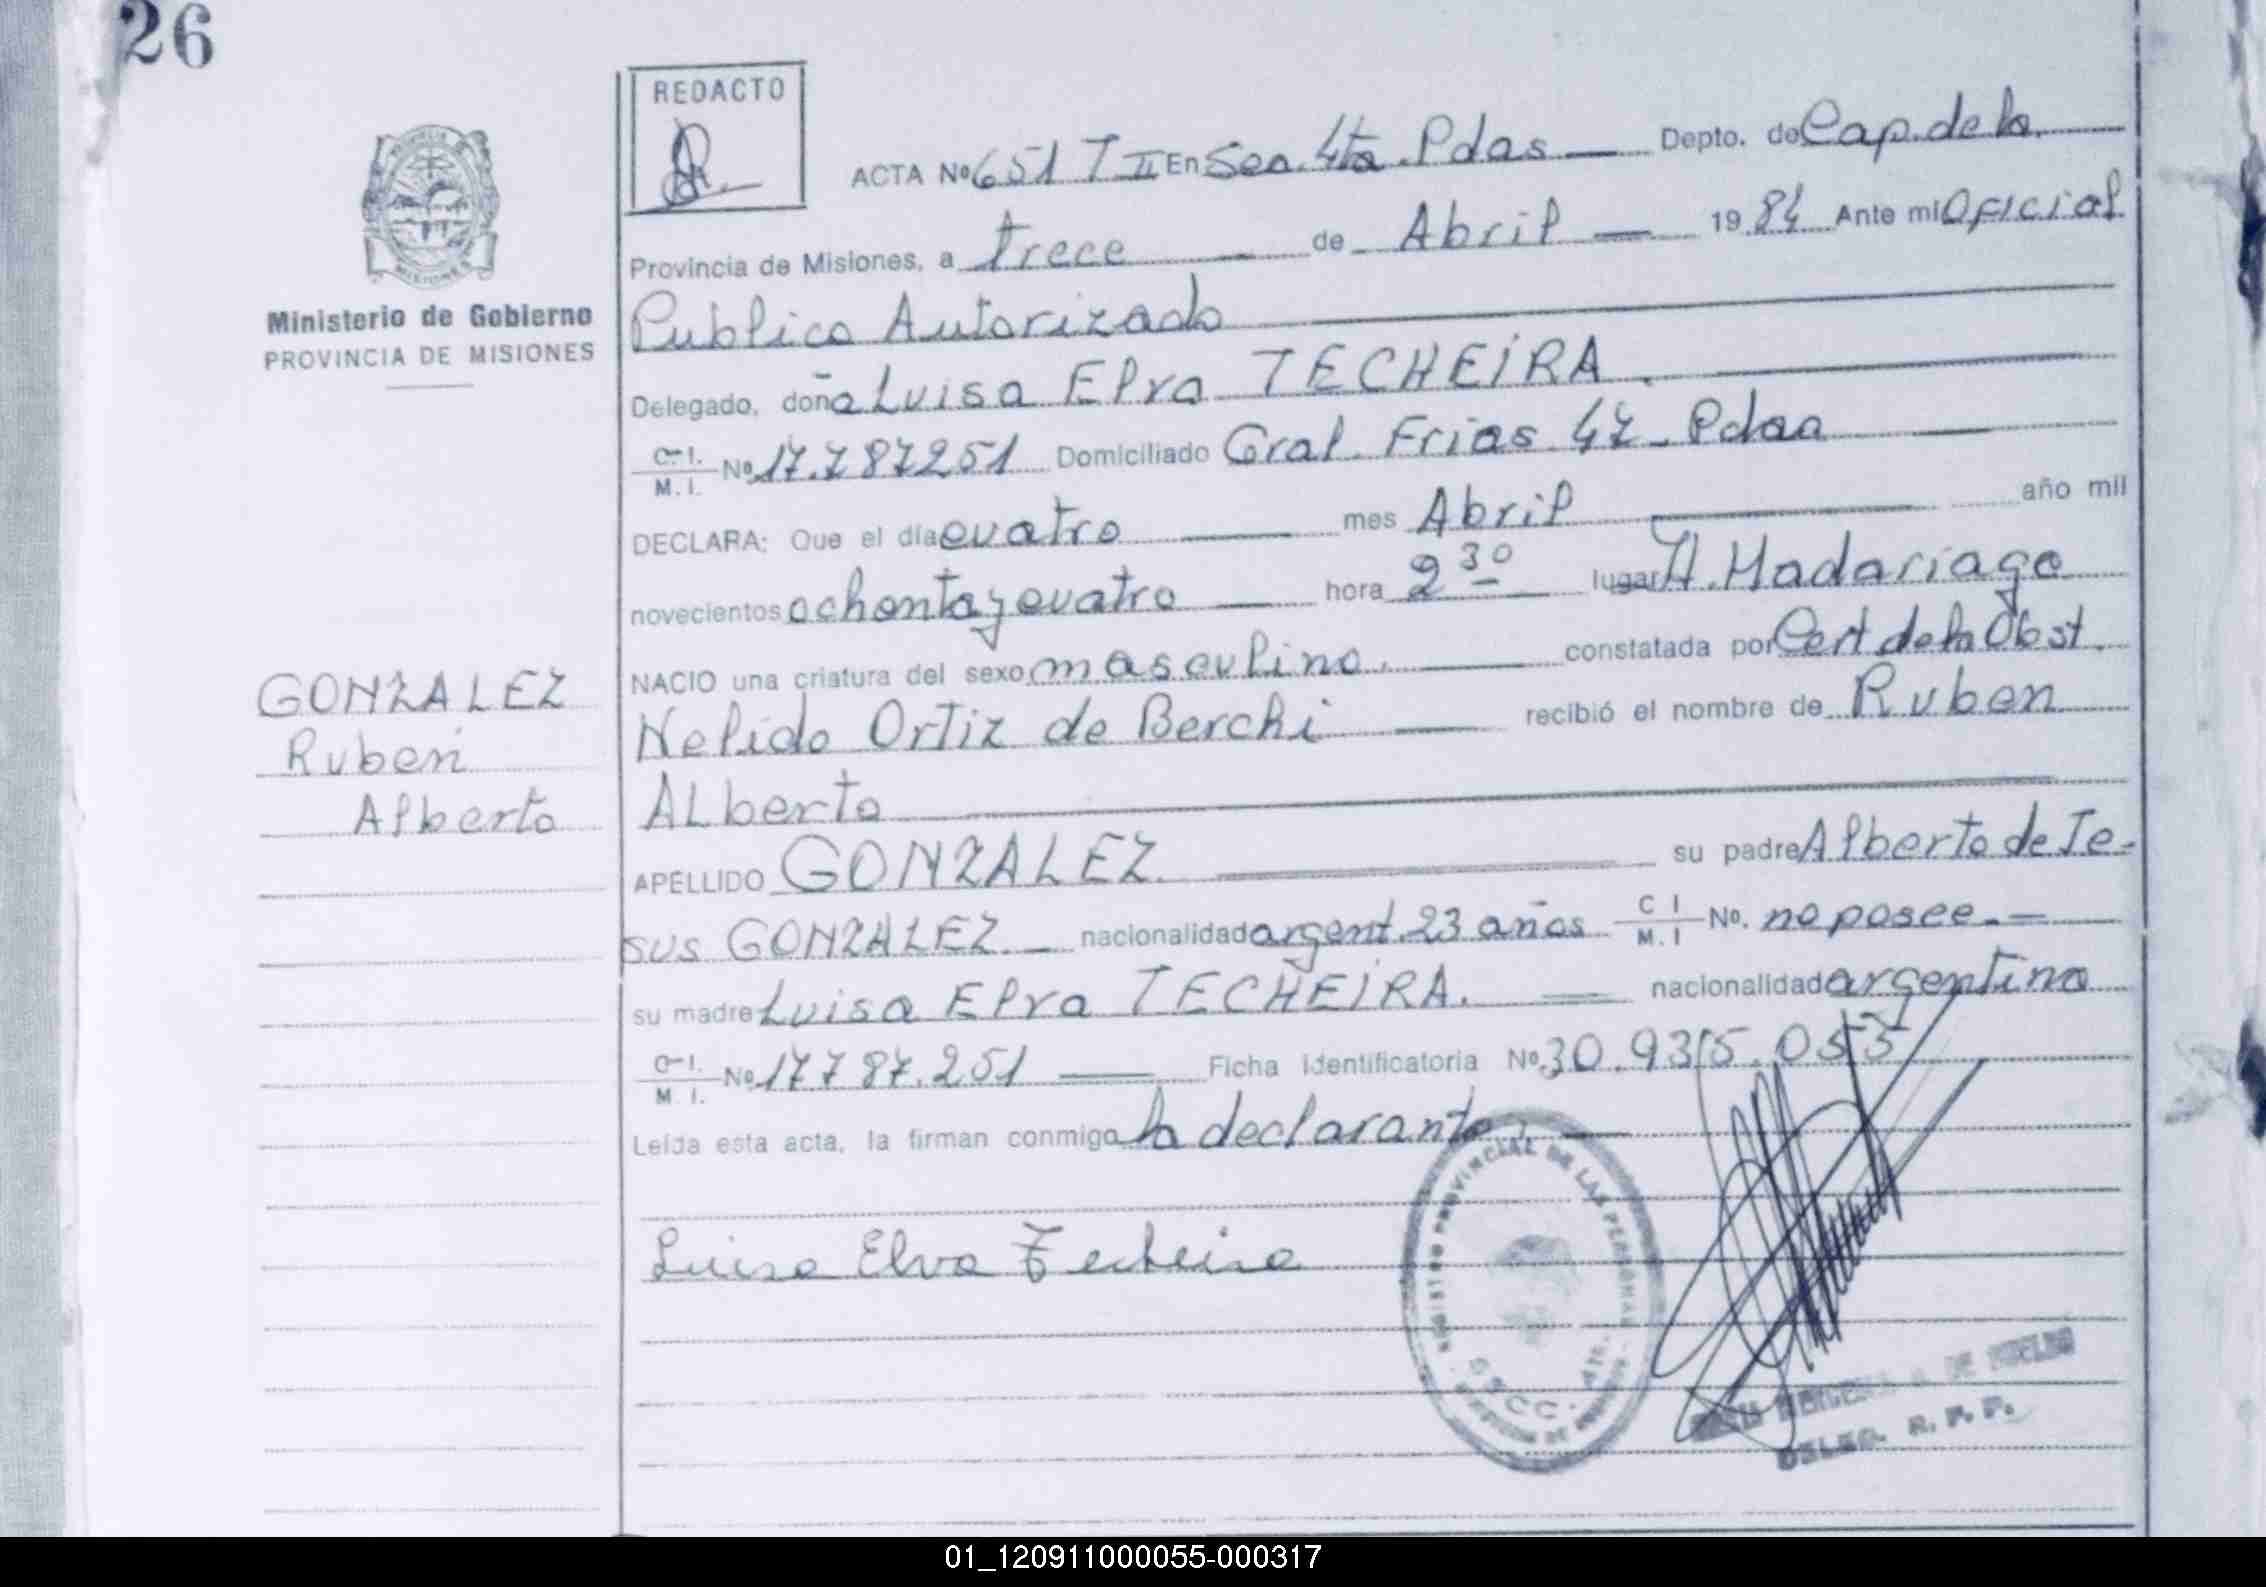 26
REDACTO
ACTA Nº 651 T II En Sec. 4ta. Pdas Depto. de Cap. de la
Provincia de Misiones, a trece de Abril 1984 Ante mi Oficial
Publico Autorizado
Ministerio de Gobierno
PROVINCIA DE MISIONES
Delegado, doña Luisa Elva TECHEIRA.
C. I. M. I. Nº 17.787251 Domiciliado Gral. Frias 47 - Pdas
DECLARA: Que el día cuatro mes Abril año mil
novecientos ochenta y cuatro hora 2 30 lugar H. Madariaga
NACIO una criatura del sexo masculino. constatada por Cert de la Obst.
Nelida Ortiz de Berchi recibió el nombre de Ruben
Alberto
GONZALEZ
Ruben
Alberto
APELLIDO GONZALEZ. su padre Alberto de Je-
sus GONZALEZ. nacionalidad argent. 23 años C I M. I Nº. no posee.
su madre Luisa Elva TECHEIRA. nacionalidad argentina
C. I. M. I. Nº 17787.251 Ficha Identificatoria Nº 30.935.055
Leída esta acta, la firman conmigo la declarante.
Luisa Elva Techeira
REGISTRO PROVINCIAL DE LAS PERSONAS
DELEG. R. P. P.
01_120911000055-000317